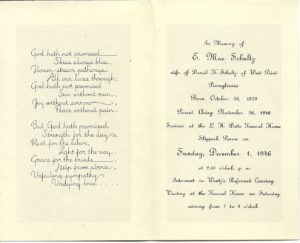 God hath not promised
Skies always blue,
Flower-strewn pathways
All our lives through.
God hath not promised
Sun without rain,
Joy without sorrow,
Peace without pain.
But God hath promised
Strength for the day,
Rest for the labor,
Light for the way.
Grace for the trials
Help from above,
Unfailing sympathy
Undying love.
In Memory of
E. Mae Schultz
wife of Daniel K. Schultz of West Point
Pennsylvania
Born October 28, 1879
Passed Away November 26, 1946
Services at the Funeral Home
Skippack, Penna. on
Sunday, December 1, 1946
at 2:00 o'clock, p. m.
Interment in Wentz's Reformed Cemetery
Viewing at the Funeral Home on Saturday
evening from 7 to 9 o'clock